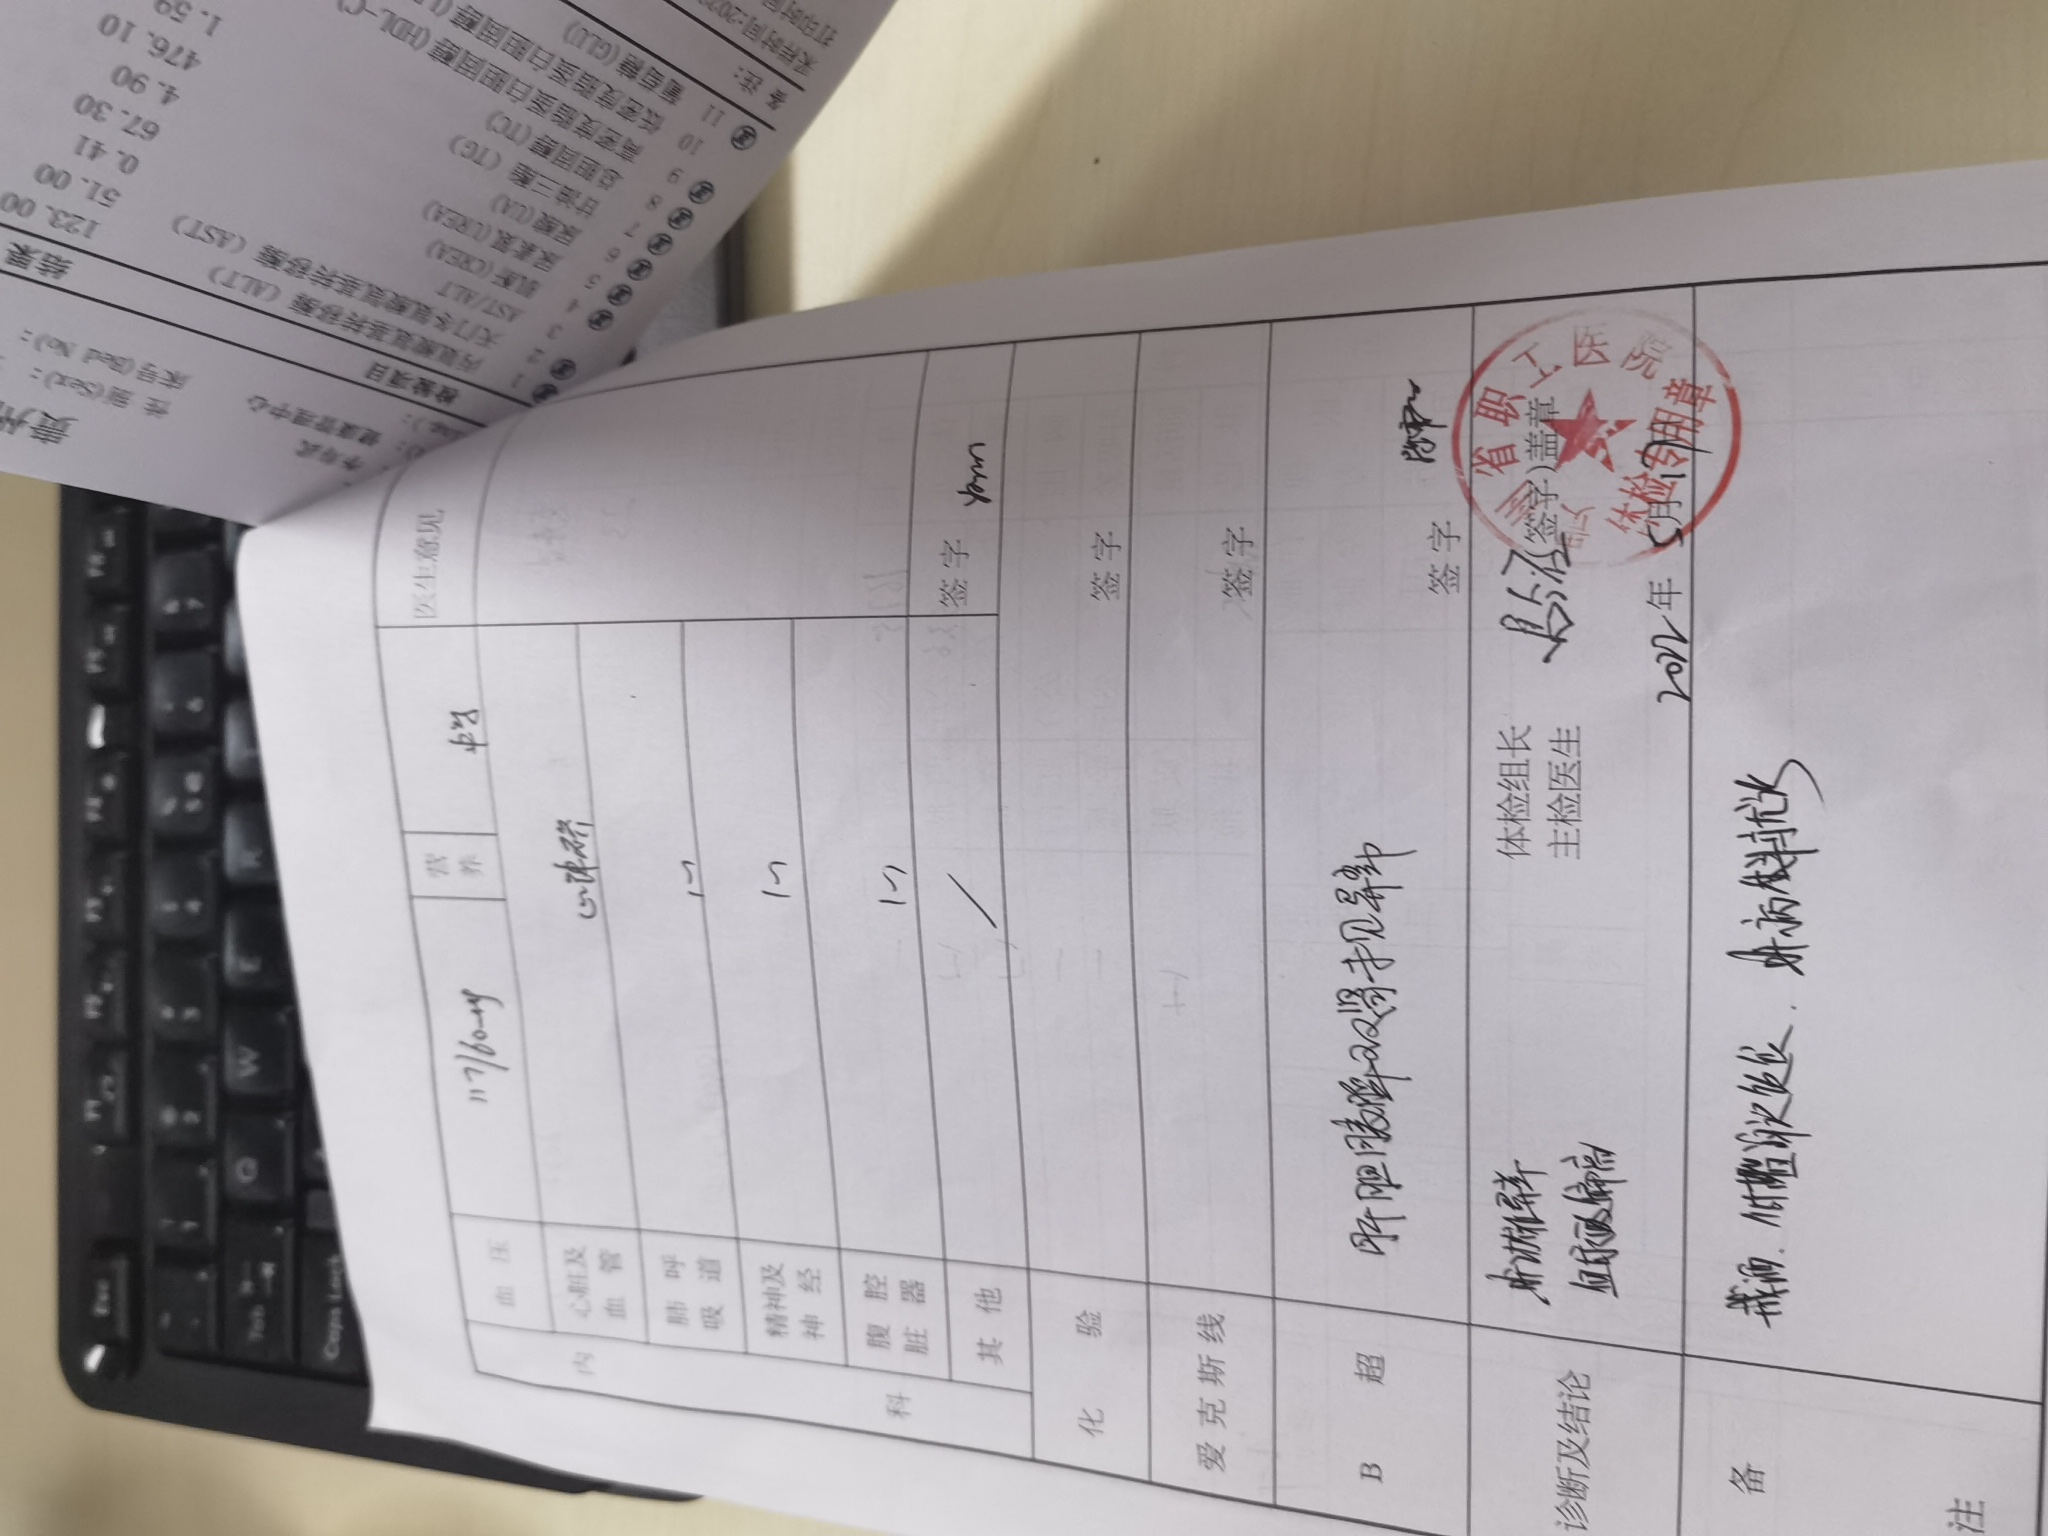 医生意见
血压
117/60mmHg
营养
中等
内科
心脏及血管
心律齐
肺呼吸道
(-)
精神及神经
(-)
腹腔脏器
(-)
其他
/
签字
化验
签字
爱克斯线
签字
B超
肝胆胰脾双肾未见异常
签字
诊断及结论
肝功能异常
血尿酸偏高
体检组长
主检医生
(签字)盖章
2022年5月17日
省职工医院
体检专用章
备注
戒酒.
检验项目
结果
1 丙氨酸氨基转移酶 (ALT) 123.00
2 天门冬氨酸氨基转移酶 (AST) 51.00
3 AST/ALT 0.41
4 肌酐 (CREA) 67.30
5 尿素氮 (UREA) 4.90
6 尿酸 (UA) 476.10
7 甘油三酯 (TG) 1.59
8 总胆固醇 (TC)
9 高密度脂蛋白胆固醇 (HDL-C)
10 低密度脂蛋白胆固醇
11 葡萄糖 (GLU)
备注:
采样时间:202
打印时间
健康管理中心
性别(Sex):
床号(Bed No):
贵州
Esc
F1
F2
F3
F4
Tab
Q
W
E
R
Caps Lock